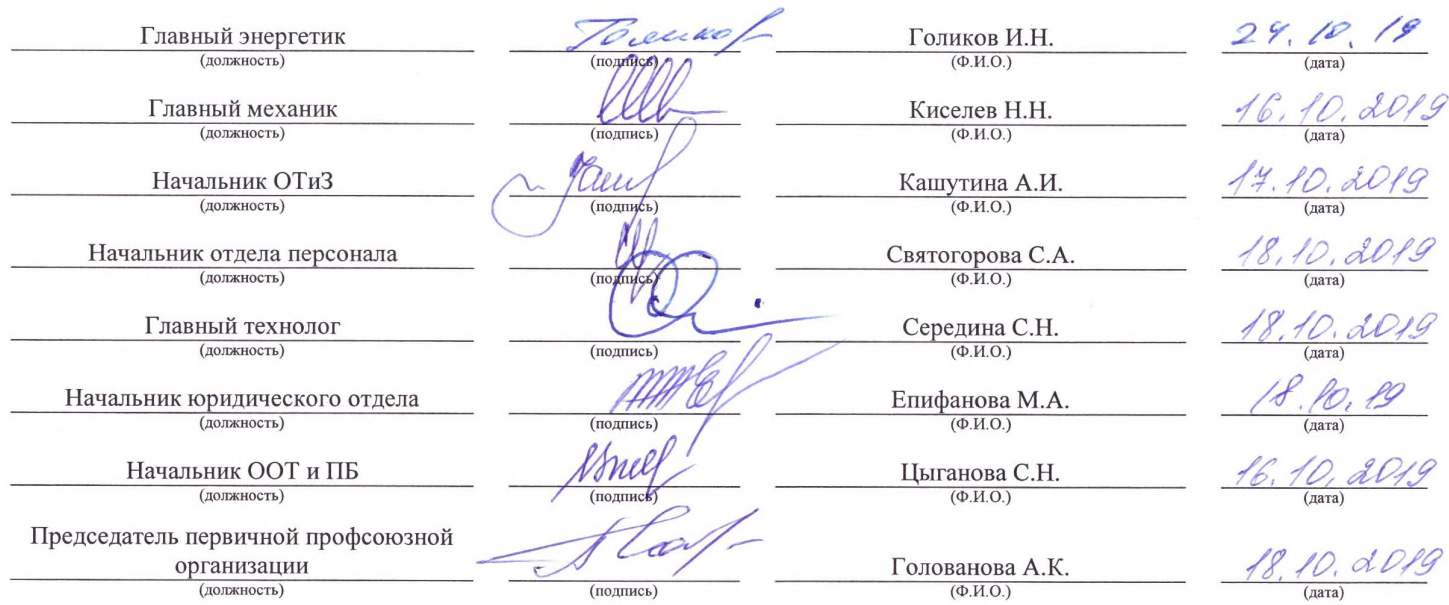 Главный энергетик Голиков Голиков И.Н. 24.10.19
(должность) (подпись) (Ф.И.О.) (дата)
Главный механик Киселев Н.Н. 16.10.2019
(должность) (подпись) (Ф.И.О.) (дата)
Начальник ОТиЗ Кашутина А.И. 17.10.2019
(должность) (подпись) (Ф.И.О.) (дата)
Начальник отдела персонала Святогорова С.А. 18.10.2019
(должность) (подпись) (Ф.И.О.) (дата)
Главный технолог Середина С.Н. 18.10.2019
(должность) (подпись) (Ф.И.О.) (дата)
Начальник юридического отдела Епифанова М.А. 18.10.19
(должность) (подпись) (Ф.И.О.) (дата)
Начальник ООТ и ПБ Цыганова С.Н. 16.10.2019
(должность) (подпись) (Ф.И.О.) (дата)
Председатель первичной профсоюзной
организации Голованова А.К. 18.10.2019
(должность) (подпись) (Ф.И.О.) (дата)